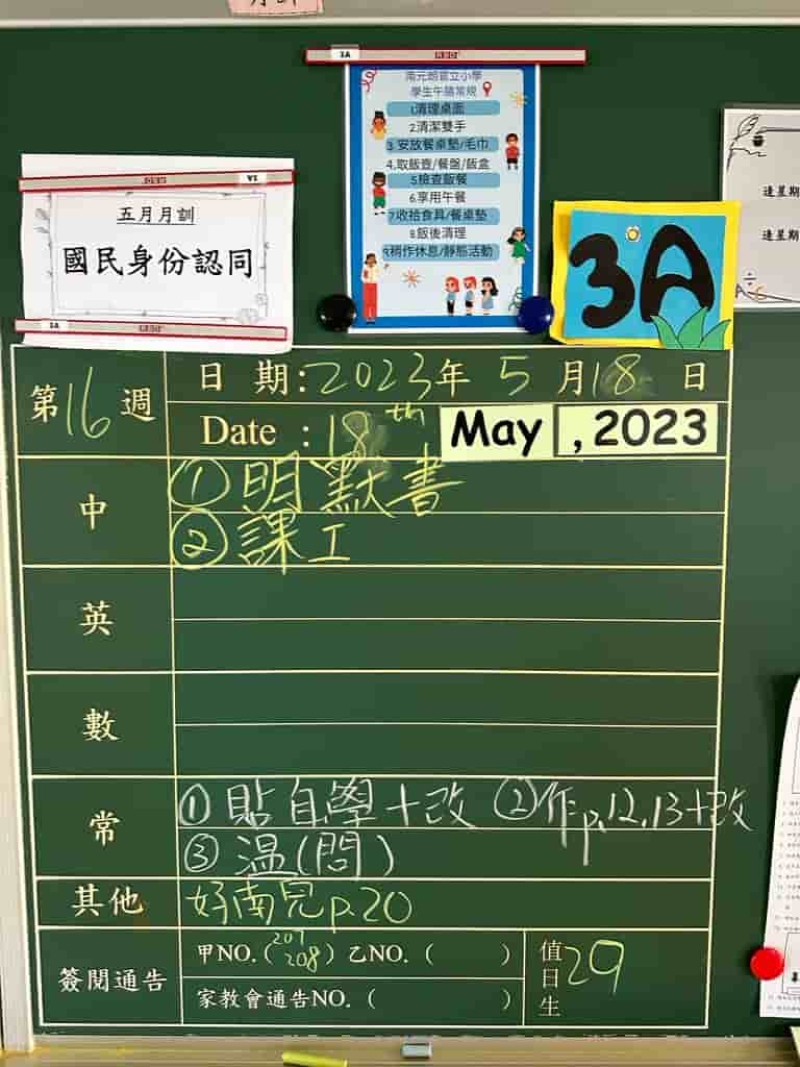 五月月訓
國民身份認同
南元朗官立小學
學生午膳常規
1.清理桌面
2.清潔雙手
3.安放餐桌墊/毛巾
4.取飯壼/餐盤/飯盒
5檢查飯餐
6.享用午餐
7收拾食具/餐桌墊
8飯後清理
稍作休息/靜態活動
3A
逢星期
逢星期
第16週
日 期:2023年 5 月18 日
Date :18th May , 2023
中
①明默書
②課工
英
數
常
①貼自學+改 ②作p.12,13+改
③溫(問)
其他
好南兒p.20
簽閱通告
甲NO.(207 208) 乙NO.( )
家教會通告NO.( )
值日生 29